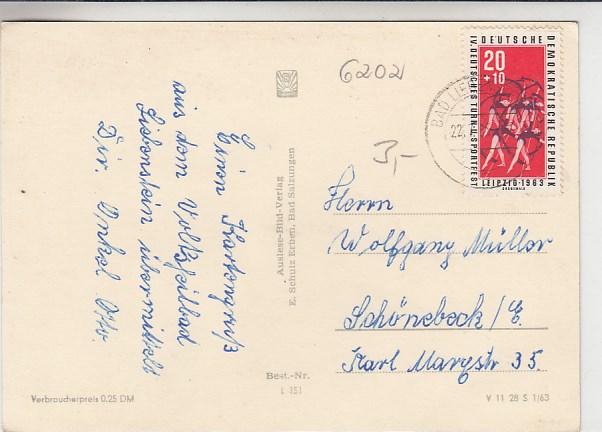 Einen Kartengruß
aus dem Volksheilbad
Liebenstein übermittelt
Dir. Onkel Otto.
Auslese-Bild-Verlag
E. Schulz Erben, Bad Salzungen
6202
3,-
BAD LIE
22.
DEUTSCHE DEMOKRATISCHE REPUBLIK
IV. DEUTSCHES TURN-U. SPORTFEST
LEIPZIG·1963
20
+10
Herrn
Wolfgang Müller
Schönebeck/E.
Karl Marxstr 35.
Best.-Nr.
L 151
Verbraucherpreis 0.25 DM
V 11 28 S 1/63